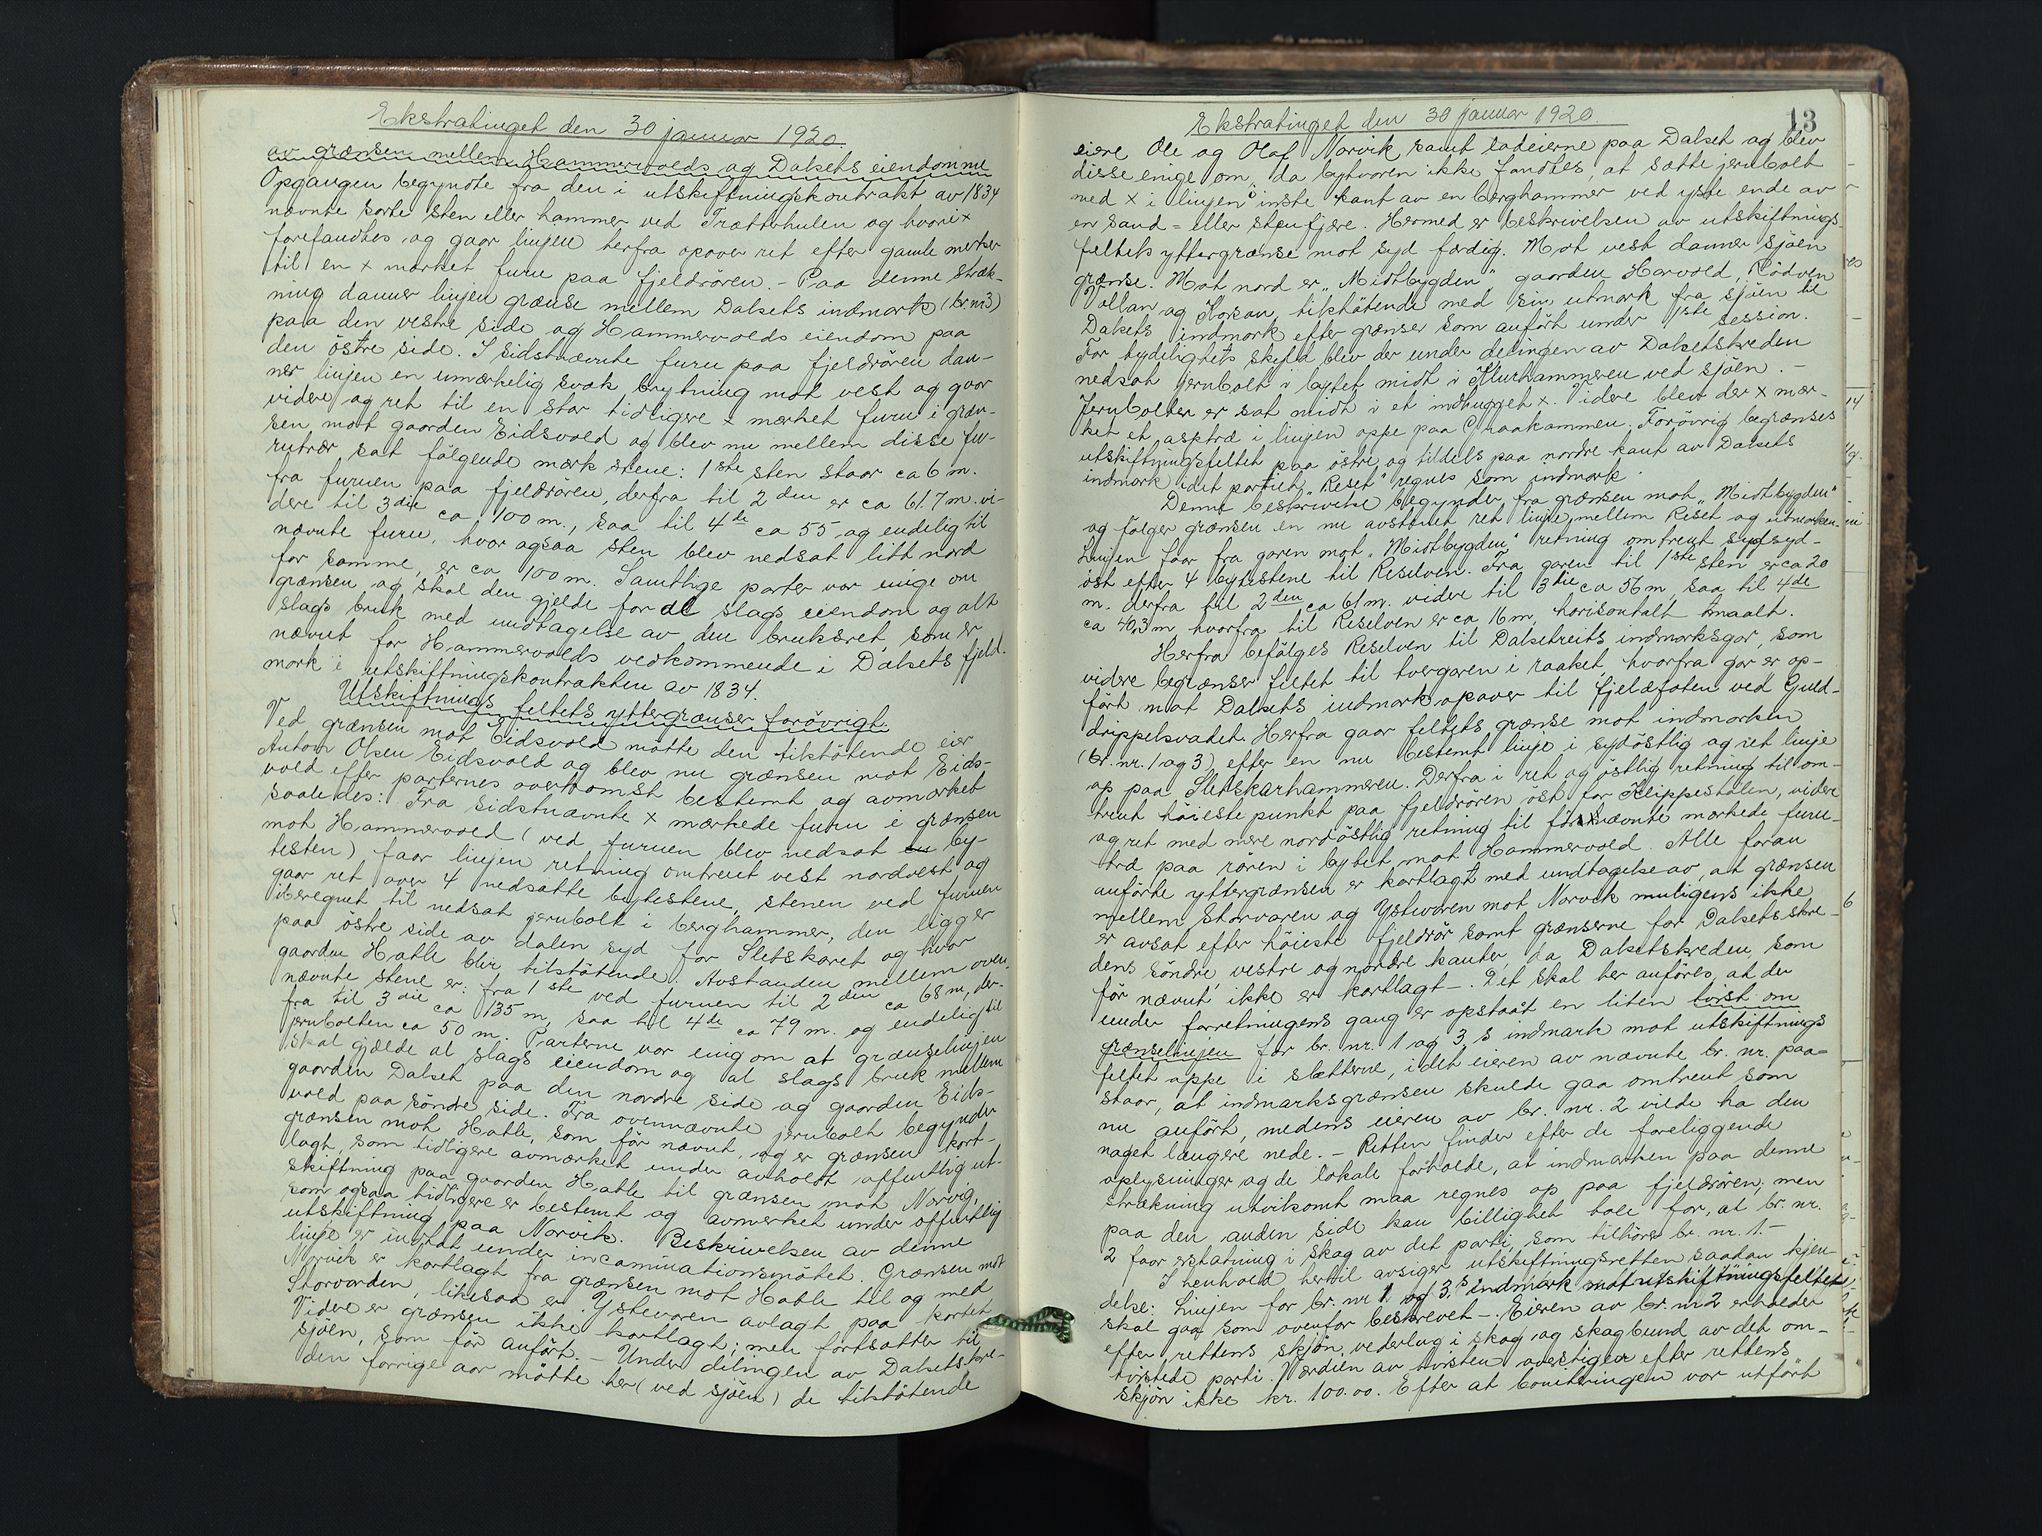 Ekstratinget den 30 januar 1920.
av grænsen mellem Hammervolds og Dalsets eiendomme
Opgangen begyndte fra den i utskiftningskontrakt av 1834
nævnte sorte sten eller hammer ved Trætterhulen og hvori x
forefandtes og gaar linjen herfra opover ret efter gamle merker
til en x mærket furu paa fjeldrören. - Paa denne stræk-
ning danner linjen grænse mellem Dalsets indmark (br.nr3)
paa den vestre side og Hammervolds eiendom paa
den östre side. I sidstnævnte furu paa fjeldrören dan-
ner linjen en umærkelig svak brytning mot vest og gaar
videre og ret til en stor tidligere x mærket furu i græn-
sen mot gaarden Eidsvold og blev nu mellem disse fu-
rutrær sat fölgende merkstene: 1ste sten staar ca 6 m.
fra furuen paa fjeldrören, derfra til 2den er ca 61.7 m. vi-
dere til 3die ca 100 m., saa til 4de ca 55 og endelig til
nævnte furu, hvor ogsaa sten blev nedsat litt nord
for samme, er ca 100 m. Samtlige parter var enige om
grænsen og skal den gjelde for al slags eiendom og alt
slags bruk med undtagelse av den bruksret, som er
nævnt for Hammervolds vedkommende i Dalsets fjeld-
mark i utskiftningskontrakten av 1834.
Utskiftnings feltets yttergrænser forövrigt
Ved grænsen mot Eidsvold mötte den tilstötende eier
Anton Olsen Eidsvold og blev nu grænsen mot Eids-
vold efter parternes overkomst bestemt og avmerket
saaledes: Fra sidstnævnte x mærkede furu i grænsen
mot Hammervold (ved furuen blev nedsat en by-
testen) faar linjen retning omtrent vest nordvest og
gaar ret over 4 nedsatte bytestene, stenen ved furuen
iberegnet til nedsat jernbolt i berghammer, den ligger
paa östre side av dalen syd for Sletskaret og hvor
gaarden Hatle blir tilstötende. Avstanden mellem oven-
nævnte stene er: fra 1ste ved furuen til 2den ca 68 m, der-
fra til 3die ca 135 m, saa til 4de ca 79 m. og endelig til
jernbolten ca 50 m. Parterne var enig om at grænselinjen
skal gjælde al slags eiendom og al slags bruk mellem
gaarden Dalset paa den nordre side og gaarden Eids-
vold paa söndre side. Fra ovennævnte jernbolt begynder
grænsen mot Hatle, som för nævnt, og er grænsen kort-
lagt, som tidligere avmærket under avholdt offentlig ut-
skiftning paa gaarden Hatle til grænsen mot Norvig,
som ogsaa tidligere er bestemt og avmerket under offentlig
utskiftning paa Norvik. Beskrivelsen av denne
linje er indtat under incaminationsmötet. Grænsen mot
Norvik er kortlagt fra grænsen mot Hatle til og med
Storvarden, likesaa er Ystevaren avlagt paa kortet.
Videre er grænsen ikke kortlagt, men fortsætter til
sjöen, som för anfört. - Under delingen av Dalsetskre-
den forrige aar mötte her (ved sjöen) de tilstötende
Ekstratinget den 30 januar 1920.
13
eiere Ole og Olaf Norvik samt lodeierne paa Dalset og blev
disse enige om, da bytvaren ikke fandtes, at sætte jernbolt
med x i linjen i inste kant av en berghammer ved yste ende av
en sand- eller stenfjære. Hermed er beskrivelsen av utskiftnings-
feltets yttergrænse mot syd færdig. Mot vest danner sjöen
grænse. Mot nord er "Midtbygden" gaarden Harvold, Rödven
Vollan og Horsan, tilstötende med sin utmark fra sjöen til
Dalsets indmark efter grænser som anfört under 1ste session.
For tydelighets skyld blev der under delingen av Dalsetskreden
nedsat jernbolt i bytet midt i Klurhammeren ved sjöen. -
Jernbolten er sat midt i et indhugget x. Videre blev der x mær-
ket et asptræ i linjen oppe paa Graakammen. Forövrig begrænses
utskiftningsfeltet paa östre og tildels paa nordre kant av Dalsets
indmark idet partiet "Reset" regnes som indmark.
Denne beskrivelse begynder fra grænsen mot "Midtbygden"
og fölger grænsen en nu avstukket ret linje mellem Reset og utmarken.
Linjen faar fra garen mot "Midtbygden" retning omtrent sydsyd-
öst efter 4 bytestene til Reselven. Fra garen til 1ste sten er ca 20
m. derfra til 2den ca 61 m. videre til 3die ca 56 m, saa til 4de
ca 40,3 m hvorfra til Reselven er ca 16 m, horisontalt maalt.
Herfra befölges Reselven til Dalsetreits indmarksgar, som
videre begrænser feltet til tvergaren i raaket, hvorfra gar er op-
fört mot Dalsets indmark opover til fjeldfoten ved Guld-
drippelsvadet. Herfra gaar feltets grænse mot indmarken
(br. nr. 1 og 3) efter en nu bestemt linje i sydöstlig og ret linje
op paa Sletskarhammeren. Derfra i ret og östlig retning til om-
trent höieste punkt paa fjeldrören öst for Klippestolen, videre
og ret med mere nordöstlig retning til förnævnte merkede furu-
træ paa rören i bytet mot Hammervold. Alle foran
anförte yttergrænser er kortlagt med undtagelse av, at grænsen
mellem Storvaren og Ystevaren mot Norvik muligens ikke
er avsat efter höieste fjeldrör samt grænserne for Dalsetsskre-
dens söndre, vestre og nordre kanter, da Dalsetskreden, som
för nævnt, ikke er kortlagt -. Det skal her anföres, at der
under forretningens gang er opstaat en liten tvist om
grænselinjen for br. nr. 1 og 3,s indmark mot utskiftnings
feltet oppe i slætterne, idet eieren av nævnte br. nr. paa-
staar, at indmarksgrænsen skulde gaa omtrent som
nu anfört, medens eieren av br. nr. 2 vilde ha den
noget længere nede. - Retten finder efter de foreliggende
oplysninger og de lokale forholde, at indmarken paa denne
strækning utvilsomt maa regnes op paa fjeldrören, men
paa den anden side kan billighet tale for, at br. nr.
2 faar erstatning i skog av det parti, som tilhörer br. nr. 1. -
I henhold hertil avsiger utskiftningsretten saadan kjen-
delse: Linjen for br. nr. 1 og 3,s indmark mot utskiftningsfeltet
skal gaa som ovenfor beskrevet -. Eieren av br. nr 2 erholder
efter rettens skjön vederlag i skog og skogbund av det om-
tvistede parti. Værdien av tvisten overstiger efter rettens
skjön ikke kr. 100.00. Efter at boniteringen var utfört